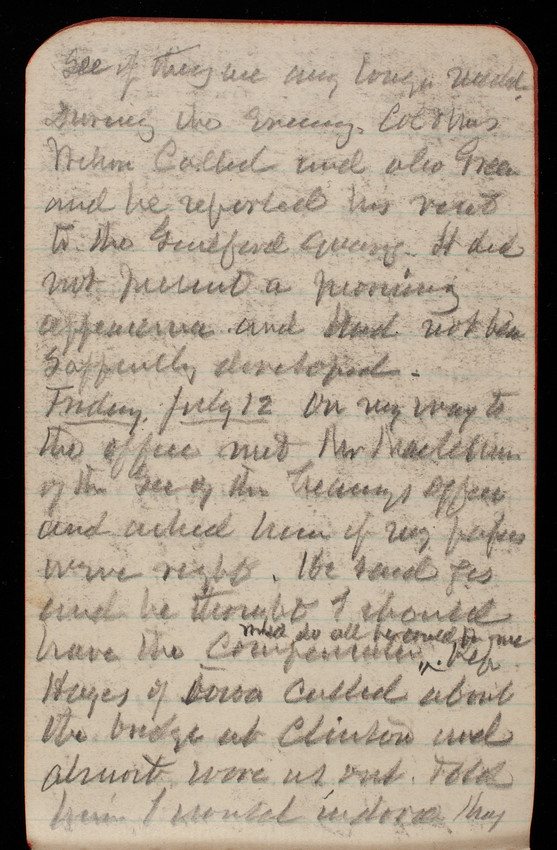 See if they were any longer needed.
During the Evening Col
Wilson Called and also Green
and he reported his visit
to the Guilford Quarry. It did
not present a promising
appearance and had not been
Sufficiently developed.
Friday, July 12 On my way to
the office met Mr
of the Sec of the Treasurys office
and asked him if my papers
were right. He said yes
and he thought I should
would do all he could for me
have the Compensation. Rep
Hayes of Iowa Called about
the bridge at Clinton and
almost wore us out. Told
him I would indorse they